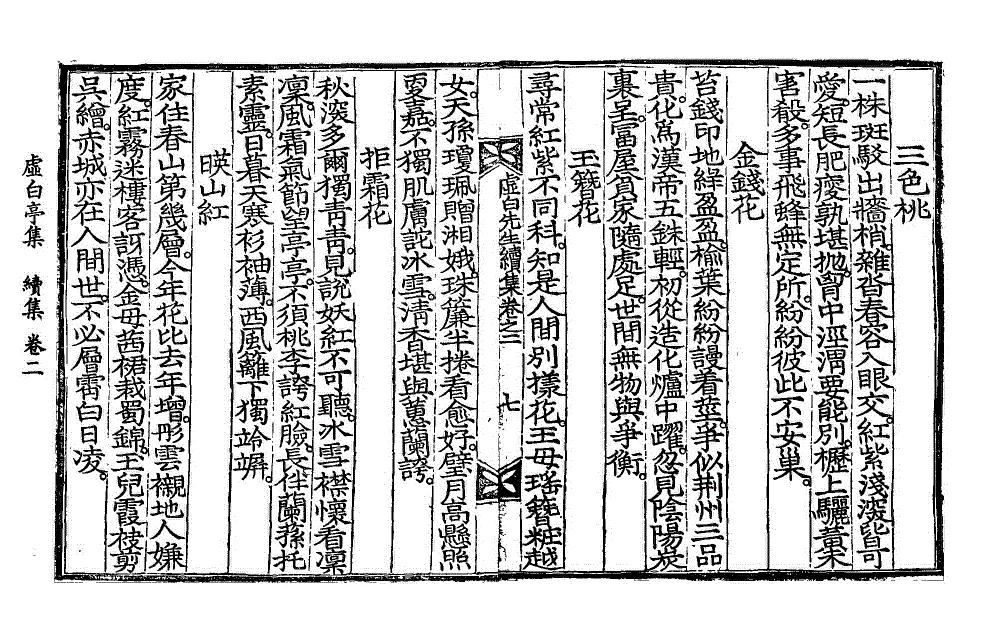 三色桃
一株斑駁出墻梢雜沓春容入眼交紅紫淺深皆可
愛短長肥瘦孰堪抛胷中涇渭要能別櫪上驪黃未
害殽多事飛蜂無定所紛紛彼此不安巢
金錢花
苔錢印地綠盈盈楡葉紛紛謾着莖爭似荆州三品
貴化爲漢帝五銖輕初從造化爐中躍忽見陰陽炭
裏呈富屋貧家隨處足世間無物與爭衡
玉簪花
尋常紅紫不同科知是人間別樣花王母瑤簪粧越
虛白先生續集卷之二　七
女天孫瓊珮贈湘娥珠簾半捲看愈好璧月高懸照
更嘉不獨肌膚詑冰雪淸香堪與蕙蘭誇
拒霜花
秋深多爾獨靑靑見說妖紅不可聽冰雪襟懷看凜
凜風霜氣節望亭亭不須桃李誇紅臉長伴蘭蓀托
素靈日暮天寒衫袖薄西風籬下獨竛竮
暎山紅
家住春山第幾層今年花比去年增彤雲襯地人嫌
度紅霧迷樓客訝憑金母茜裙裁蜀錦玉兒霞被剪
吳繒赤城亦在人間世不必層霄白日凌
虛白亭集　續集　卷二